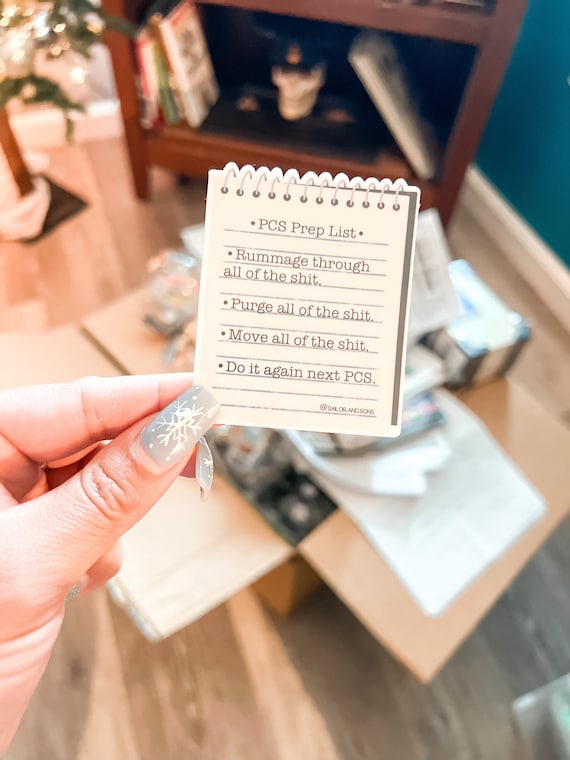 • PCS Prep List •
• Rummage through
all of the shit.
• Purge all of the shit.
• Move all of the shit.
• Do it again next PCS.
@SAILOR.AND.SONS